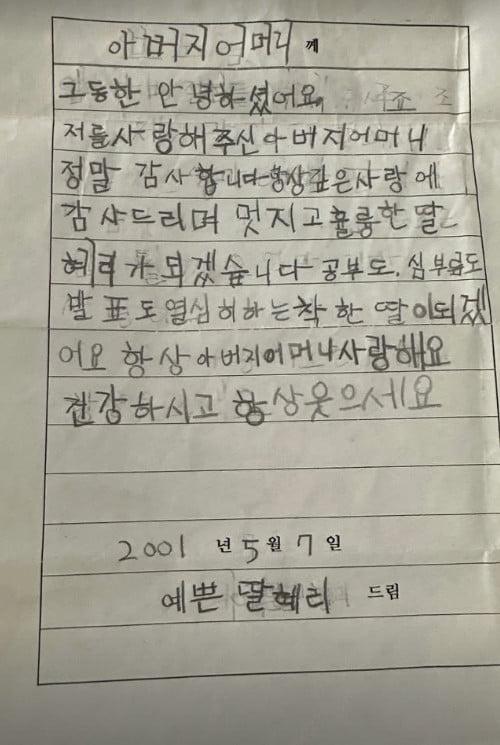 아버지어머니께
그동한 안 녕하셨어요
저를사랑해주신아버지어머니
정말 감사합니다항상깊은사랑에
감사드리며 멋지고훌륭한딸
혜리가되겠습니다 공부도, 심부름도
발표도열심히하는착한딸이되겠
어요 항상아버지어머니사랑해요
건강하시고 항상웃으세요
2001 년 5 월 7 일
예쁜 딸혜리 드림